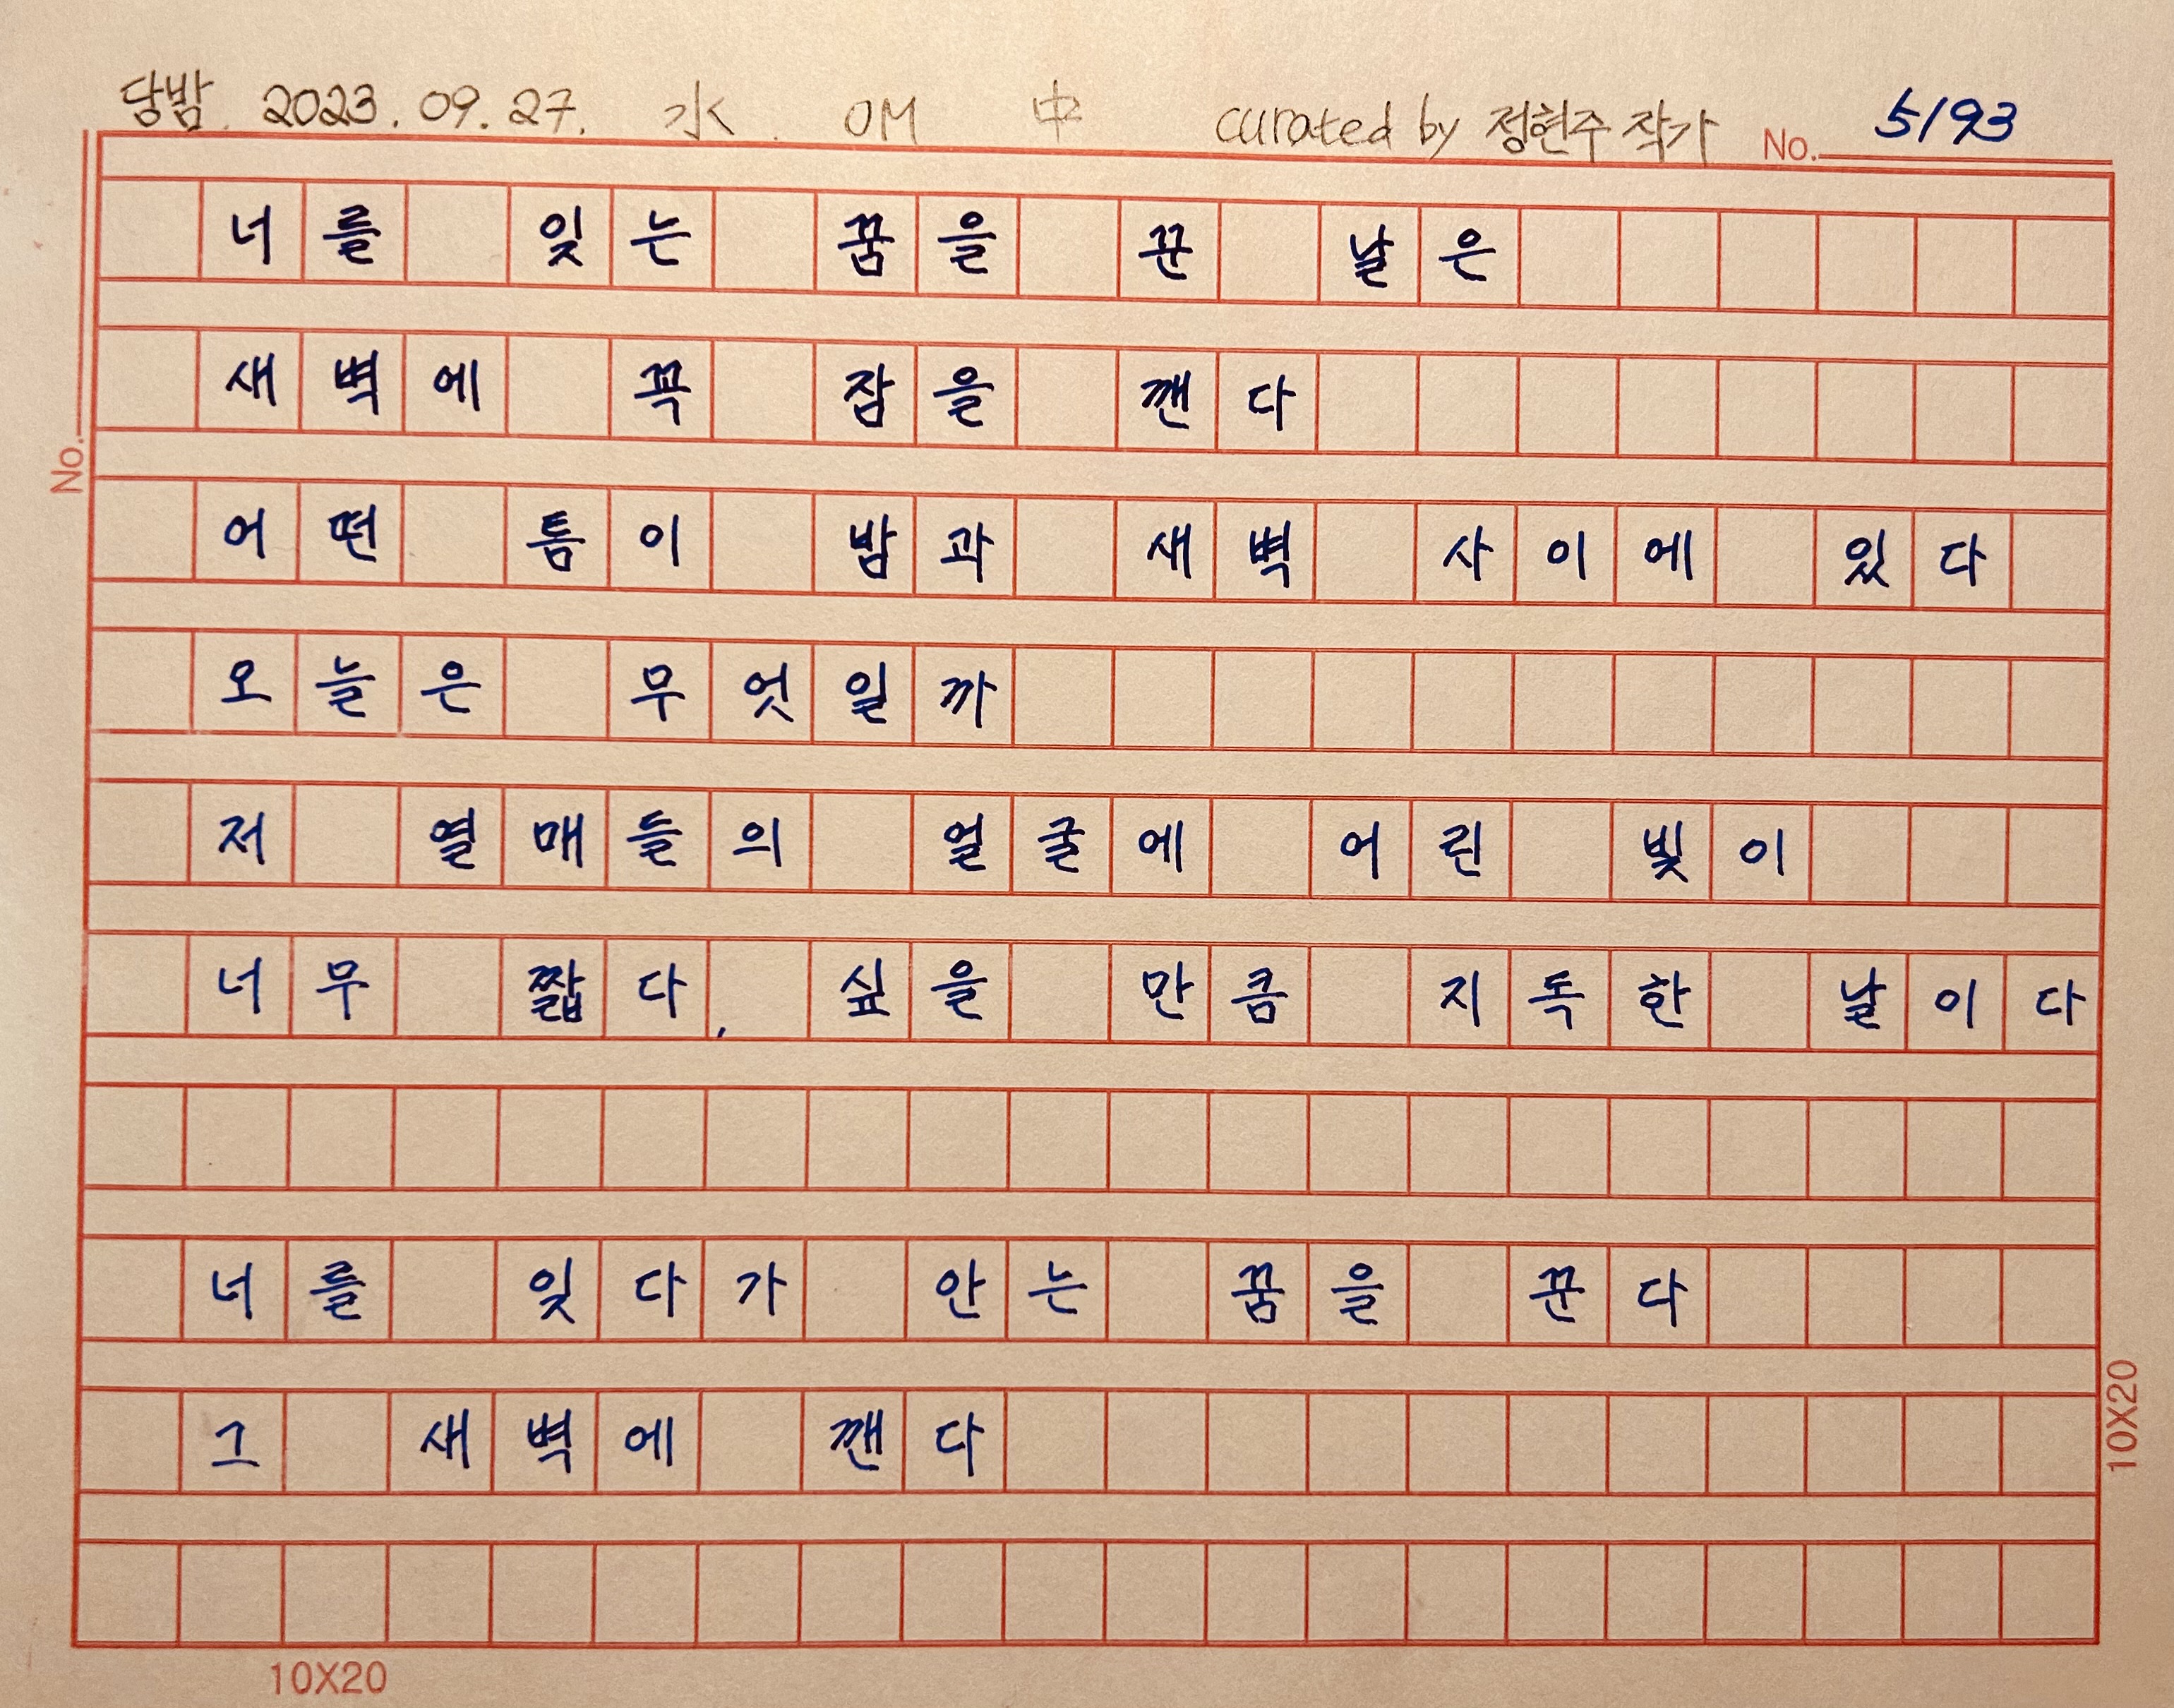 당밤. 2023. 09. 27. 水. OM 中 curated by 정현주 작가 No. 5193
너를 잊는 꿈을 꾼 날은
새벽에 꼭 잠을 깬다
어떤 틈이 밤과 새벽 사이에 있다
오늘은 무엇일까
저 열매들의 얼굴에 어린 빛이
너무 짧다, 싶을 만큼 지독한 날이다
너를 잊다가 안는 꿈을 꾼다
그 새벽에 깬다
No.
10X20
10X20